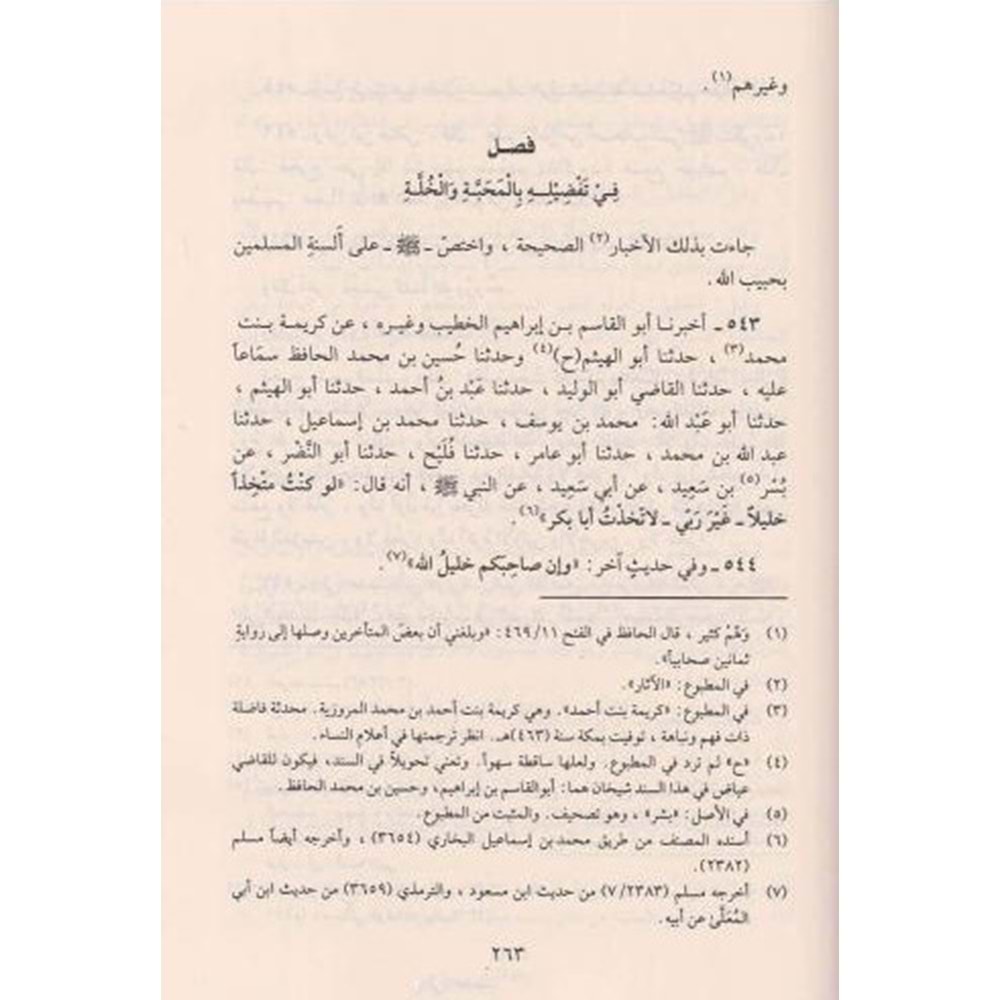 وغيرهم(١).
فصل
فِيْ تَفْضِيْلِـهِ بِالْمَحَبَّـةِ وَالْخُلَّـةِ
جاءت بذلك الأخبار(٢) الصحيحة ، واختصّ ـ ﷺ ـ على ألسنةِ المسلمين
بحبيب الله .
٥٤٣ ـ أخبرنـا أبو القاسم بـن إبراهيم الخطيب وغيـره ، عن كريمـة بنـت
محمد(٣) ، حدثنا أبو الهيثم(ح)(٤) وحدثنا حُسين بن محمد الحافظ سمَاعاً
عليه ، حدثنا القاضي أبو الوليد ، حدثنا عَبْد بنُ أحمد ، حدثنا أبو الهيثم ،
حدثنا أبو عَبْد الله: محمد بن يوسف ، حدثنا محمد بن إسماعيل ، حدثنا
عبد الله بن محمد ، حدثنا أبو عامر ، حدثنا فُلَيْح ، حدثنا أبو النَّضْر ، عن
بُسْر(٥) بن سَعِيد ، عن أبي سَعِيد ، عن النبي ﷺ ، أنه قال: «لو كنْتُ متّخِذاً
خليلاً ـ غَيْرَ رَبّي ـ لاتّخذْتُ أبا بكر»(٦).
٥٤٤ ـ وفي حديثٍ آخر: «وإن صاحِبَكم خليلُ الله»(٧).
(١) وَهُمْ كثير ، قال الحافظ في الفتح ٤٦٩/١١: «وبلغني أن بعضَ المتأخرين وصلها إلى روايةِ
ثمانين صحابياً».
(٢) في المطبوع: «الآثار».
(٣) في المطبوع: «كريمة بنت أحمد». وهي كريمة بنت أحمد بن محمد المروزية. محدثة فاضلة
ذات فهم ونباهة ، توفيت بمكة سنة (٤٦٣)هـ. انظر ترجمتها في أعلام النساء.
(٤) «ح» لم ترد في المطبوع. ولعلها ساقطة سهواً. وتعني تحويلاً في السند، فيكون للقاضي
عياض في هذا السند شيخان هما: أبوالقاسم بن إبراهيم، وحسين بن محمد الحافظ .
(٥) في الأصل: «بشر» ، وهو تصحيف. والمثبت من المطبوع.
(٦) أسنده المصنف من طريق محمد بن إسماعيل البخاري (٣٦٥٤) ، وأخرجه أيضاً مسلم
(٢٣٨٢).
(٧) أخرجه مسلم (٧/٢٣٨٣) من حديث ابن مسعود ، والترمذي (٣٦٥٩) من حديث ابن أبي
المُعَلَّىٰ عن أبيه .
٢٦٣